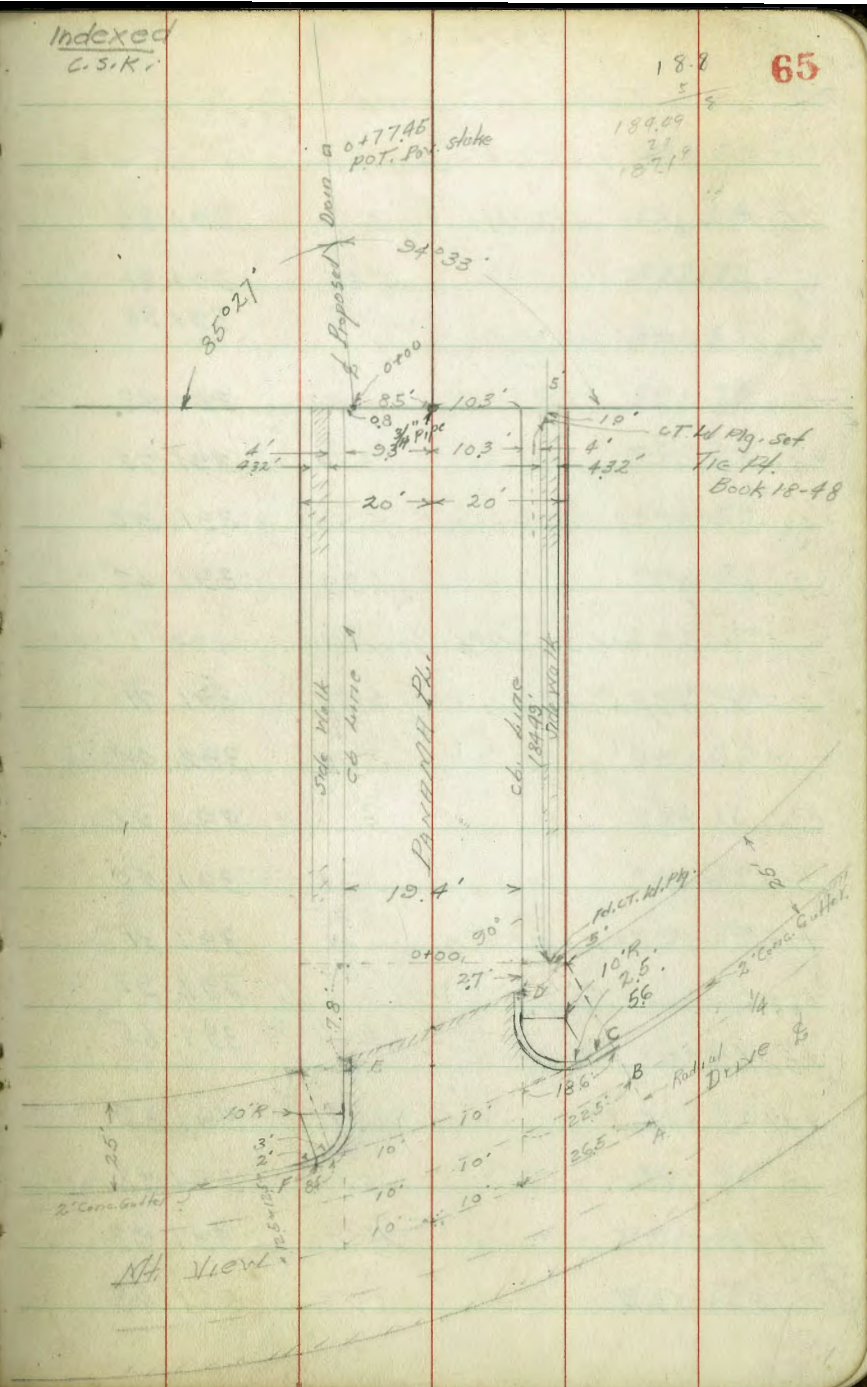 Indexed
C.S.K.
65
18.8
5
8
184.49
0+77.45
P.O.T. Pav. stake
₵ Proposed Drain
94°33'
85°27'
0+00
5'
8.5'
10.3'
0.8
3/4" Pipe
1.0'
CT. Ld Plg. set
Tie Pt.
Book 18-48
4'
4.32'
9.3'
10.3'
4'
4.32'
20'
20'
Side Walk
Cb Line
PANAMA PL.
Cb. Line
184.49'
Side Walk
19.4'
Fd. CT. Ld. Plg.
25'
90°
5'
0+00
10'R
2.7'
D
2.5'
5.6
2' Conc. Gutter
1/4
7.8'
E
C
Radial
Drive
₵
18.6'
B
10'R
10'
22.5'
25'
3'
2'
10'
10'
26.5'
A
F
2' Conc. Gutter
10'
10'
10'
Mt. View